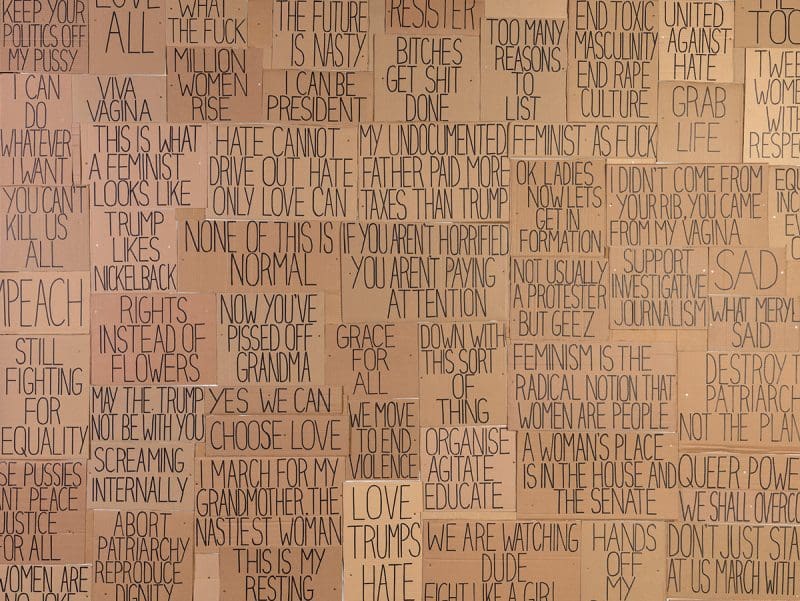 KEEP YOUR
POLITICS OFF
MY PUSSY
LOVE
ALL
WHAT
THE FUCK
THE FUTURE
IS NASTY
RESISTER
BITCHES
GET SHIT
DONE
TOO MANY
REASONS
TO
LIST
END TOXIC
MASCULINITY
END RAPE
CULTURE
UNITED
AGAINST
HATE
TOO
I CAN
DO
WHATEVER
I WANT
VIVA
VAGINA
MILLION
WOMEN
RISE
I CAN BE
PRESIDENT
GRAB
LIFE
TWEE
WOME
WITH
RESPE
THIS IS WHAT
A FEMINIST
LOOKS LIKE
HATE CANNOT
DRIVE OUT HATE
ONLY LOVE CAN
MY UNDOCUMENTED
FATHER PAID MORE
TAXES THAN TRUMP
FEMINIST AS FUCK
OK LADIES
NOW LETS
GET IN
FORMATION
I DIDN'T COME FROM
YOUR RIB, YOU CAME
FROM MY VAGINA
EQU
INC
EV
YOU CAN'T
KILL US
ALL
TRUMP
LIKES
NICKELBACK
NONE OF THIS IS
NORMAL
IF YOU AREN'T HORRIFIED
YOU ARENT PAYING
ATTENTION
NOT USUALLY
A PROTESTER
BUT GEEZ
SUPPORT
INVESTIGATIVE
JOURNALISM
SAD
MPEACH
RIGHTS
INSTEAD OF
FLOWERS
NOW YOU'VE
PISSED OFF
GRANDMA
GRACE
FOR
ALL
DOWN WITH
THIS SORT
OF
THING
WHAT MERYL
SAID
STILL
FIGHTING
FOR
EQUALITY
FEMINISM IS THE
RADICAL NOTION THAT
WOMEN ARE PEOPLE
DESTROY T
PATRIARCH
NOT THE PLAN
MAY THE TRUMP
NOT BE WITH YOU
YES WE CAN
CHOOSE LOVE
WE MOVE
TO END
VIOLENCE
ORGANISE
AGITATE
EDUCATE
A WOMAN'S PLACE
IS IN THE HOUSE AND
THE SENATE
QUEER POWE
WE SHALL OVERCO
SE PUSSIES
NT PEACE
JUSTICE
FOR ALL
SCREAMING
INTERNALLY
MARCH FOR MY
GRANDMOTHER, THE
NASTIEST WOMAN
LOVE
TRUMPS
HATE
ABORT
PATRIARCHY
REPRODUCE
DIGNITY
THIS IS MY
RESTING
WE ARE WATCHING
DUDE
FIGHT LIKE A GIRL
HANDS
OFF
MY
DON'T JUST STA
AT US MARCH WITH
WOMEN ARE